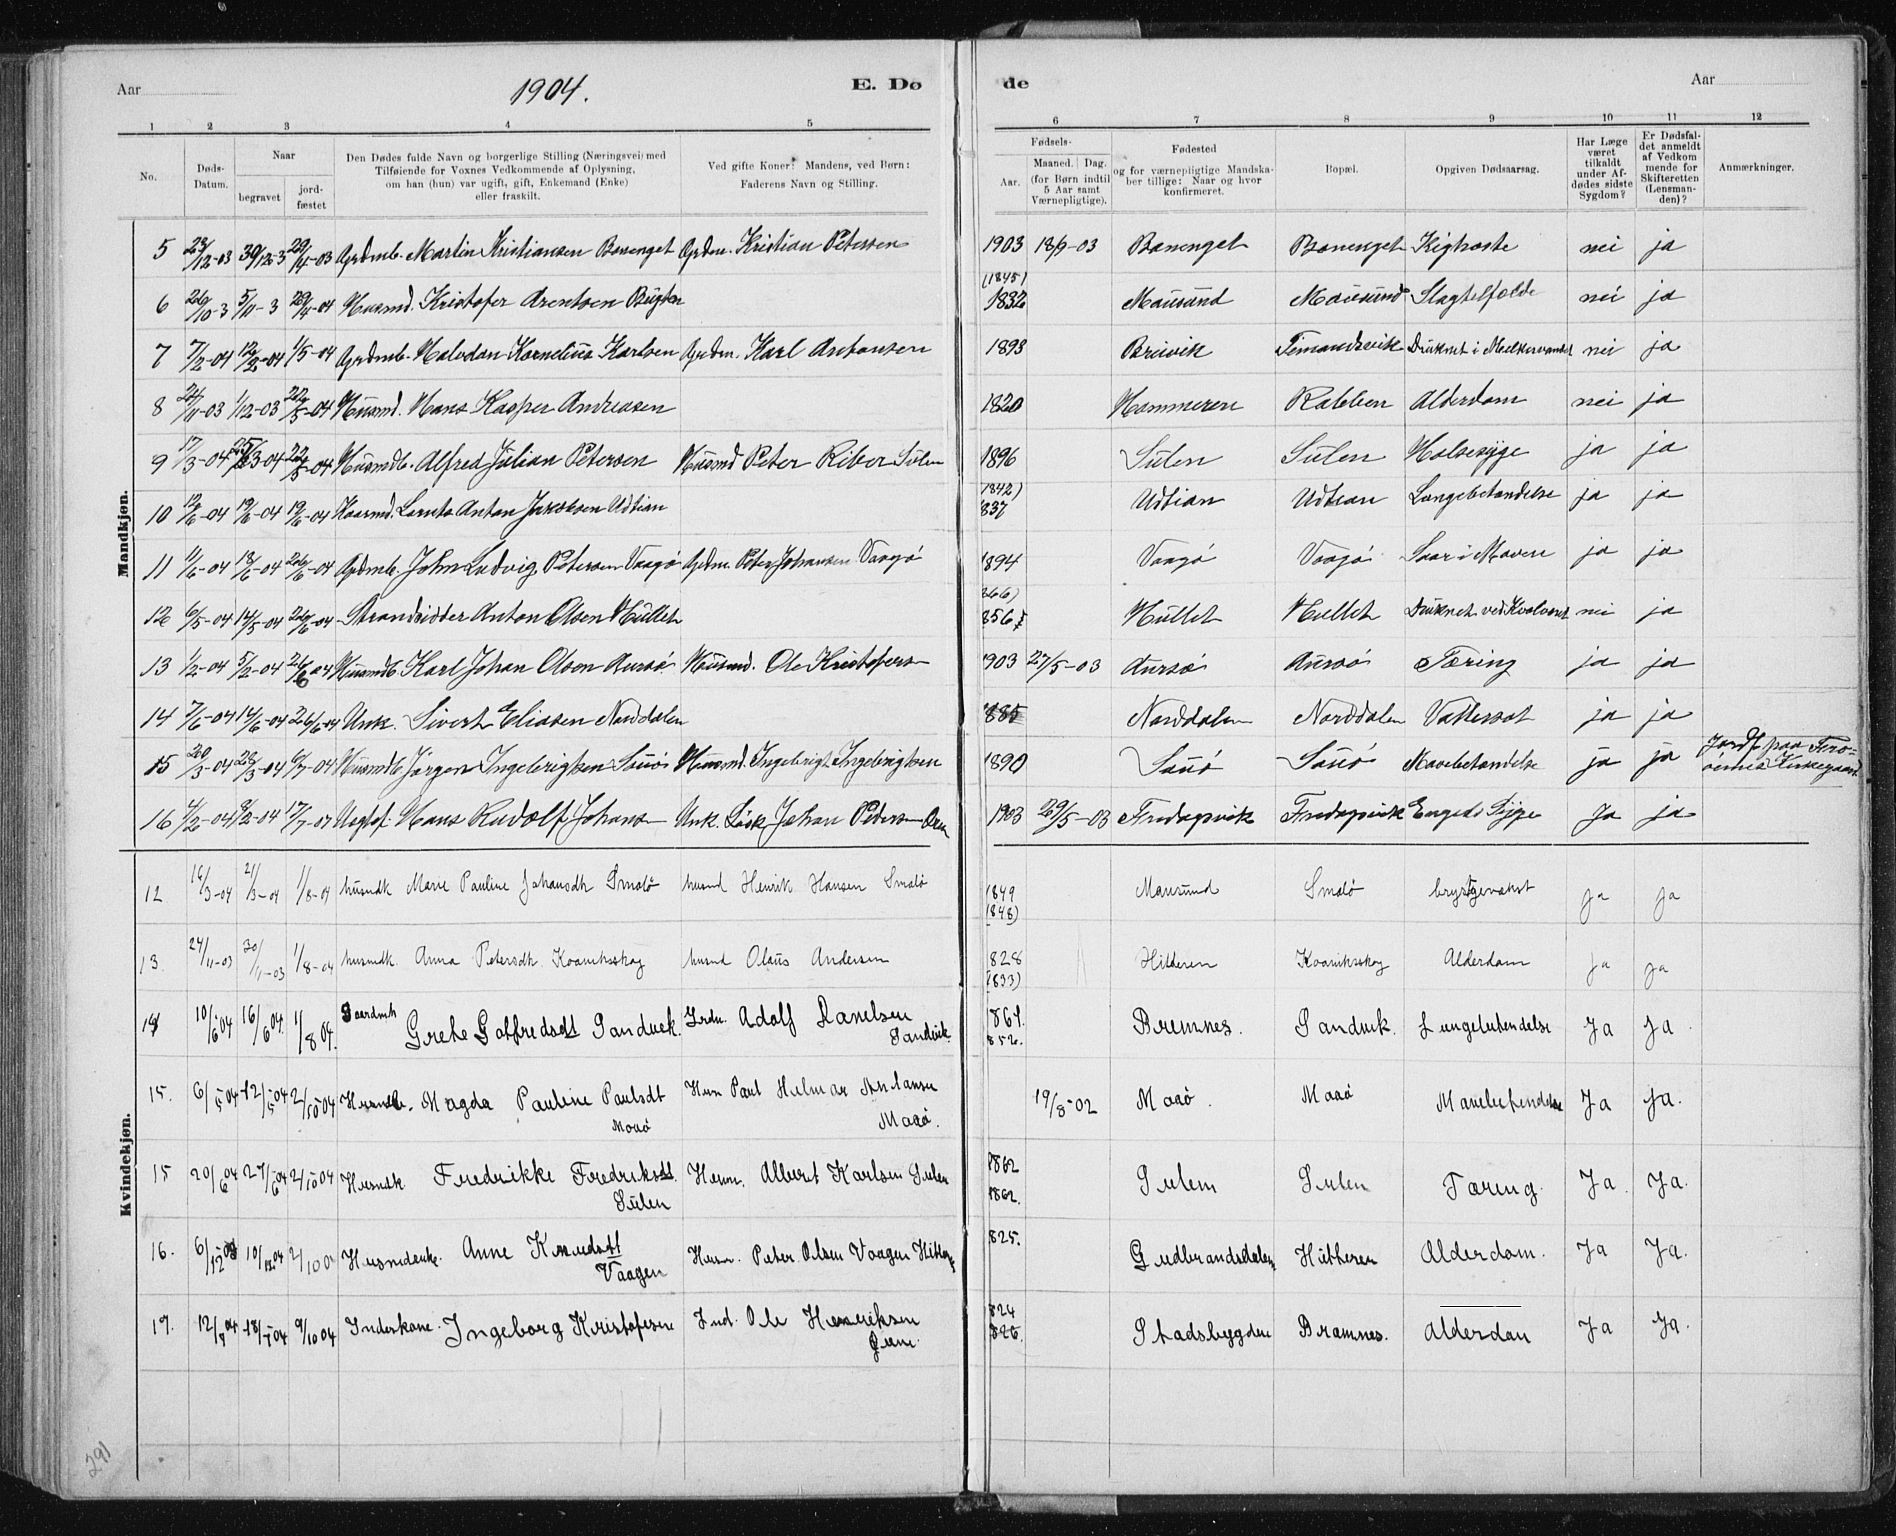 Aar 1904. E. Dø de Aar
1 2 3 4 5 6 7 8 9 10 11 12
No. Døds-Datum. Naar begravet jord-fæstet Den Dødes fulde Navn og borgerlige Stilling (Næringsvei) med Tilføiende for Voxnes Vedkommende af Oplysning, om han (hun) var ugift, gift, Enkemand (Enke) eller fraskilt. Ved gifte Koner: Mandens, ved Børn: Faderens Navn og Stilling. Fødsels- Aar. Maaned. Dag. (for Børn indtil 5 Aar samt Værnepligtige). Fødested og for værnepligtige Mandskaber tillige: Naar og hvor konfirmeret. Bopæl. Opgiven Dødsaarsag. Har Læge været tilkaldt under Afdødes sidste Sygdom? Er Dødsfaldet anmeldt af Vedkommende for Skifteretten (Lensmanden)? Anmærkninger.
Mandkjøn.
5 23/12-03 30/12-3 29/4-03 Grdmb. Martin Kristiansen Barenget Grdm. Kristian Petersen 1903 18/9-03 Barenget Barenget Kighoste nei ja
6 26/10-3 5/11-3 29/4-04 Husmd. Kristofer Arentsen Bugten (1845) 1832 Mausund Mausund Slagtelfælde nei ja
7 7/2-04 12/2-04 1/5-04 Grdmb. Halvdan Kornelius Karlsen Grdm. Karl Antonsen 1893 Breivik Druknet i nei ja
8 24/11-03 1/12-03 22/5-04 Husmd. Hans Kasper Andreasen 1820 Hammeren Rabben Alderdom nei ja
9 17/3-04 25/3-04 22/5-04 Husmdb. Alfred Julian Petersen Husmd Peter Riber Sulen 1896 Sulen Sulen Halssyge ja ja
10 12/6-04 19/6-04 19/6-04 Kaarmd. Lornts Anton Jakobsen Udtian 1842) 837 Udtian Udtian Lungebetændelse ja ja
11 11/6-04 18/6-04 26/6-04 Grdmb. John Ludvig Petersen Vaagø Grdm. Peter Johansen Vaagø 1894 Vaagø Vaagø Saar i Maven ja ja
12 6/5-04 14/5-04 26/6-04 Strandsidder Anton Olsen Hullet 866) 856 Hullet Hullet Druknet ved Kvalværet nei ja
13 1/2-04 5/2-04 26/6-04 Husmdb Karl Johan Olsen Aursø Husmd. Ole Kristofers 1903 27/5-03 Aursø Aursø Tæring ja ja
14 7/6-04 14/6-04 26/6-04 Unk. Sivert Eliasen Norddalen 1885 Norddalen Norddalen Vattersot ja ja
15 20/3-04 28/3-04 6/7-04 Husmdb Jørgen Ingebrigtsen Sauø Husmd. Ingebrigt Ingebrigtsen 1890 Sauø Sauø Mavebetændelse ja ja Jordf. paa Frøøernes Kirkegaard
16 4/2-04 8/2-04 17/7-04 Hans Rudolf Johans Unk. Løsk Johan Peders 1903 29/5-03 Fredagsvik Fredagsvik Engelsk Syge Ja ja
Kvindekjøn.
12 16/3-04 21/3-04 1/8-04 husmdk Marie Pauline Johansdtr Smalø husmd Henrik Hansen Smalø 1849 1848) Mausund Smalø brystgevækst Ja Ja
13. 24/11-03 30/11-03 1/8-04 husmdk. Anna Petersdtr. Kvaviksskog husmd Olaus Andersen 828 1833) Hitteren Kvaviksskog Alderdom Ja Ja
14 10/6 04 16/6 04. 1/8 04. Gaardmk Grete Gotfredsdt Sandvik. Grdm. Adolf Danelsen Sandvik. 861. 852. Bremnes. Sandvik. Lungebetendelse Ja Ja
15. 6/5-04 12/5-04 2/10-04 Husmdb. Magda Pauline Paulsdt Maaø Husm Paul Helmar Maaø. 19/8-02 Maaø. Maaø Mavebetendelse Ja Ja.
15 20/6 04 27/6-04 2/10-04 Husmdk Fredrikke Fredriksdt. Sulen Husm. Albert Karlsen Sulen 1862 1862. Sulem Sulen Tæring. Ja. Ja.
16. 6/12 03 10/12-04 2/10 0 Husmdenke. Anne Knudsdtt Vaagen Husm. Peter Olsen Vaagen Hitter 825. Gudbrandsdalen Hitteren Alderdom. Ja Ja.
17. 12/1 04 18/1-04 9/10 04 Inderkone. Ingeborg Kristofersen Ind. Ole Henriksen 824 826. Stadsbygden Bramnes. Alderdom Ja Ja.
291